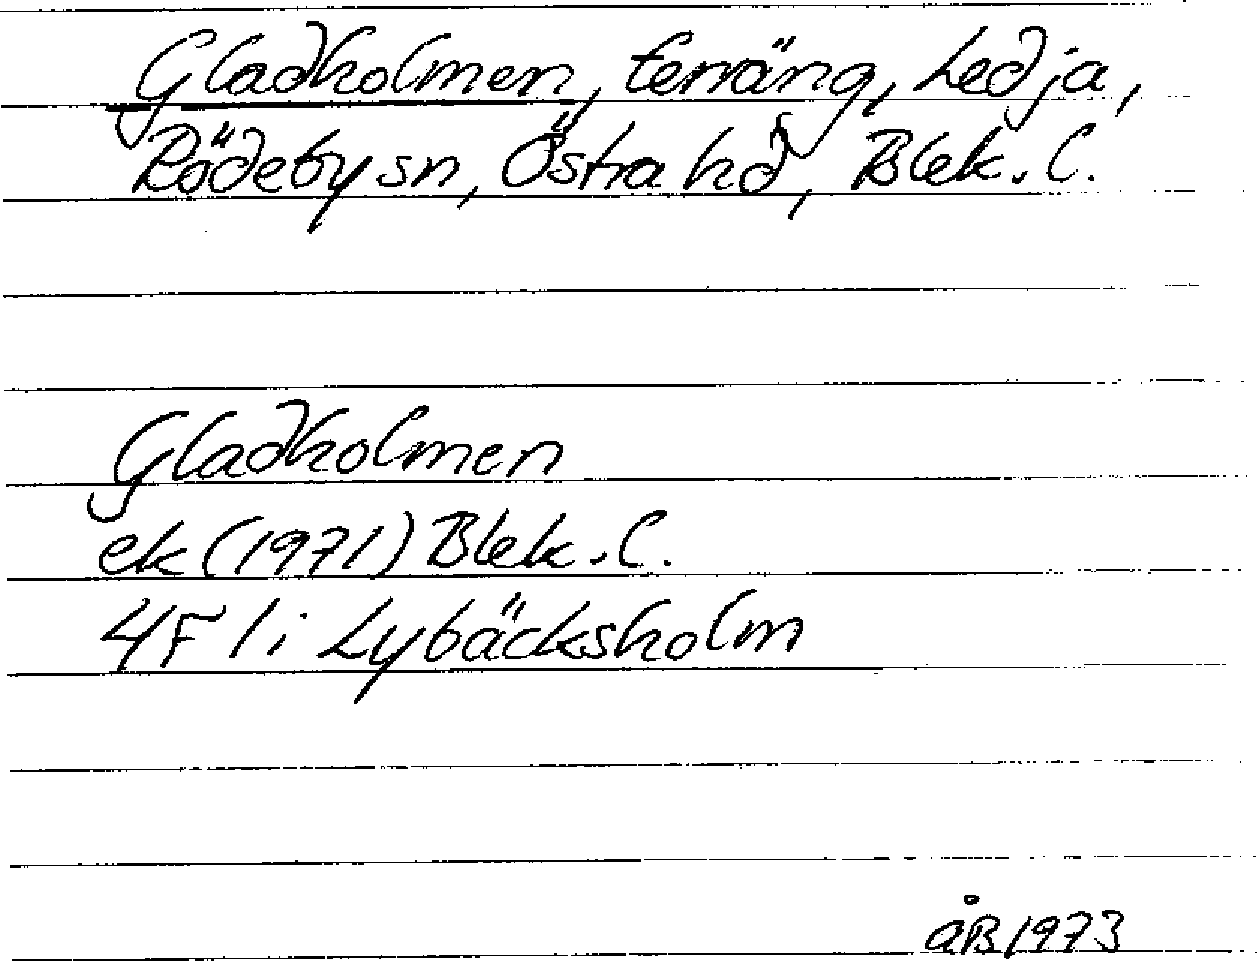 Gladholmen, terräng, Ledja,
Rödeby sn, Östra hd, Blek. l.
Gladholmen
ek (1971) Blek. l.
4F 1i Lybäcksholm
åB 1973